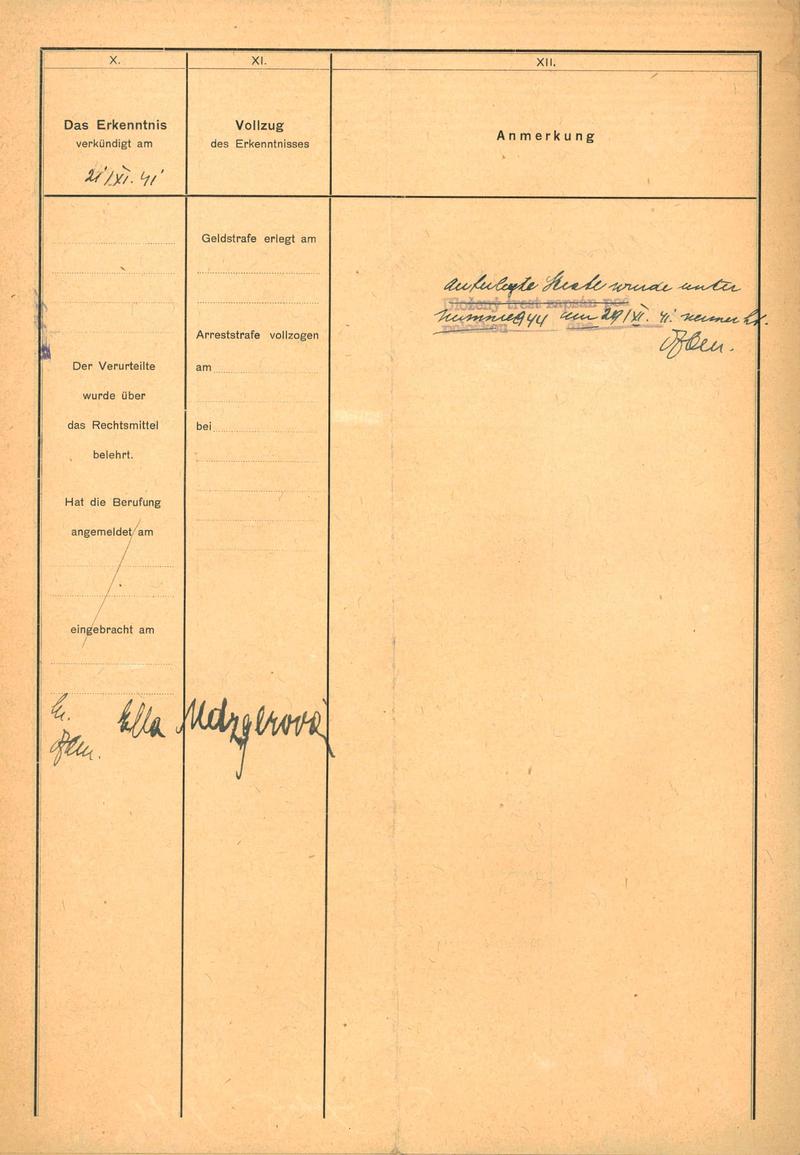 X.
Das Erkenntnis
verkündigt am
21/XI. 41
Der Verurteilte
wurde über
das Rechtsmittel
belehrt.
Hat die Berufung
angemeldet am
eingebracht am
Ella Metzgerová
XI.
Vollzug
des Erkenntnisses
Geldstrafe erlegt am
Arreststrafe vollzogen
am
bei
XII.
Anmerkung
Auferlegte Strafe wurde unter
Uložený trest zapsán pod
Nummer 944 am 29/XI. 41
položkou dne